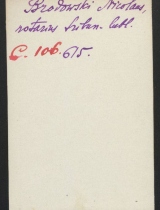 Brodowski Nicolaus,
notarius Tribun. Lubl.
C. 106. 615.